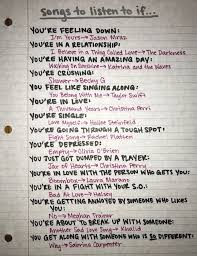 Songs to listen to if...
YOU'RE FEELING DOWN:
I'm Yours → Jason Mraz
YOU'RE IN A RELATIONSHIP:
I Believe in a Thing Called Love → The Darkness
YOU'RE HAVING AN AMAZING DAY:
Walking On Sunshine → Katrina and the Waves
YOU'RE CRUSHING:
Shower → Becky G
YOU FEEL LIKE SINGING ALONG:
You Belong With Me → Taylor Swift
YOU'RE IN LOVE:
A Thousand Years → Christina Perri
YOU'RE SINGLE:
Love Myself → Hailee Steinfeld
YOU'RE GOING THROUGH A TOUGH SPOT:
Fight Song → Rachel Platten
YOU'RE DEPRESSED:
Empty → Olivia O'Brien
YOU JUST GOT DUMPED BY A PLAYER:
Jar of Hearts → Christina Perri
YOU'RE IN LOVE WITH THE PERSON WHO GETS YOU:
Boombox → Laura Marano
YOU'RE IN A FIGHT WITH YOUR S.O.:
Bad At Love → Halsey
YOU'RE GETTING ANNOYED BY SOMEONE WHO LIKES
YOU:
No → Meghan Trainor
YOU'RE ABOUT TO BREAK UP WITH SOMEONE:
Another Sad Love Song → Khalid
YOU GET ALONG WITH SOMEONE WHO IS SO DIFFERENT:
Why → Sabrina Carpenter